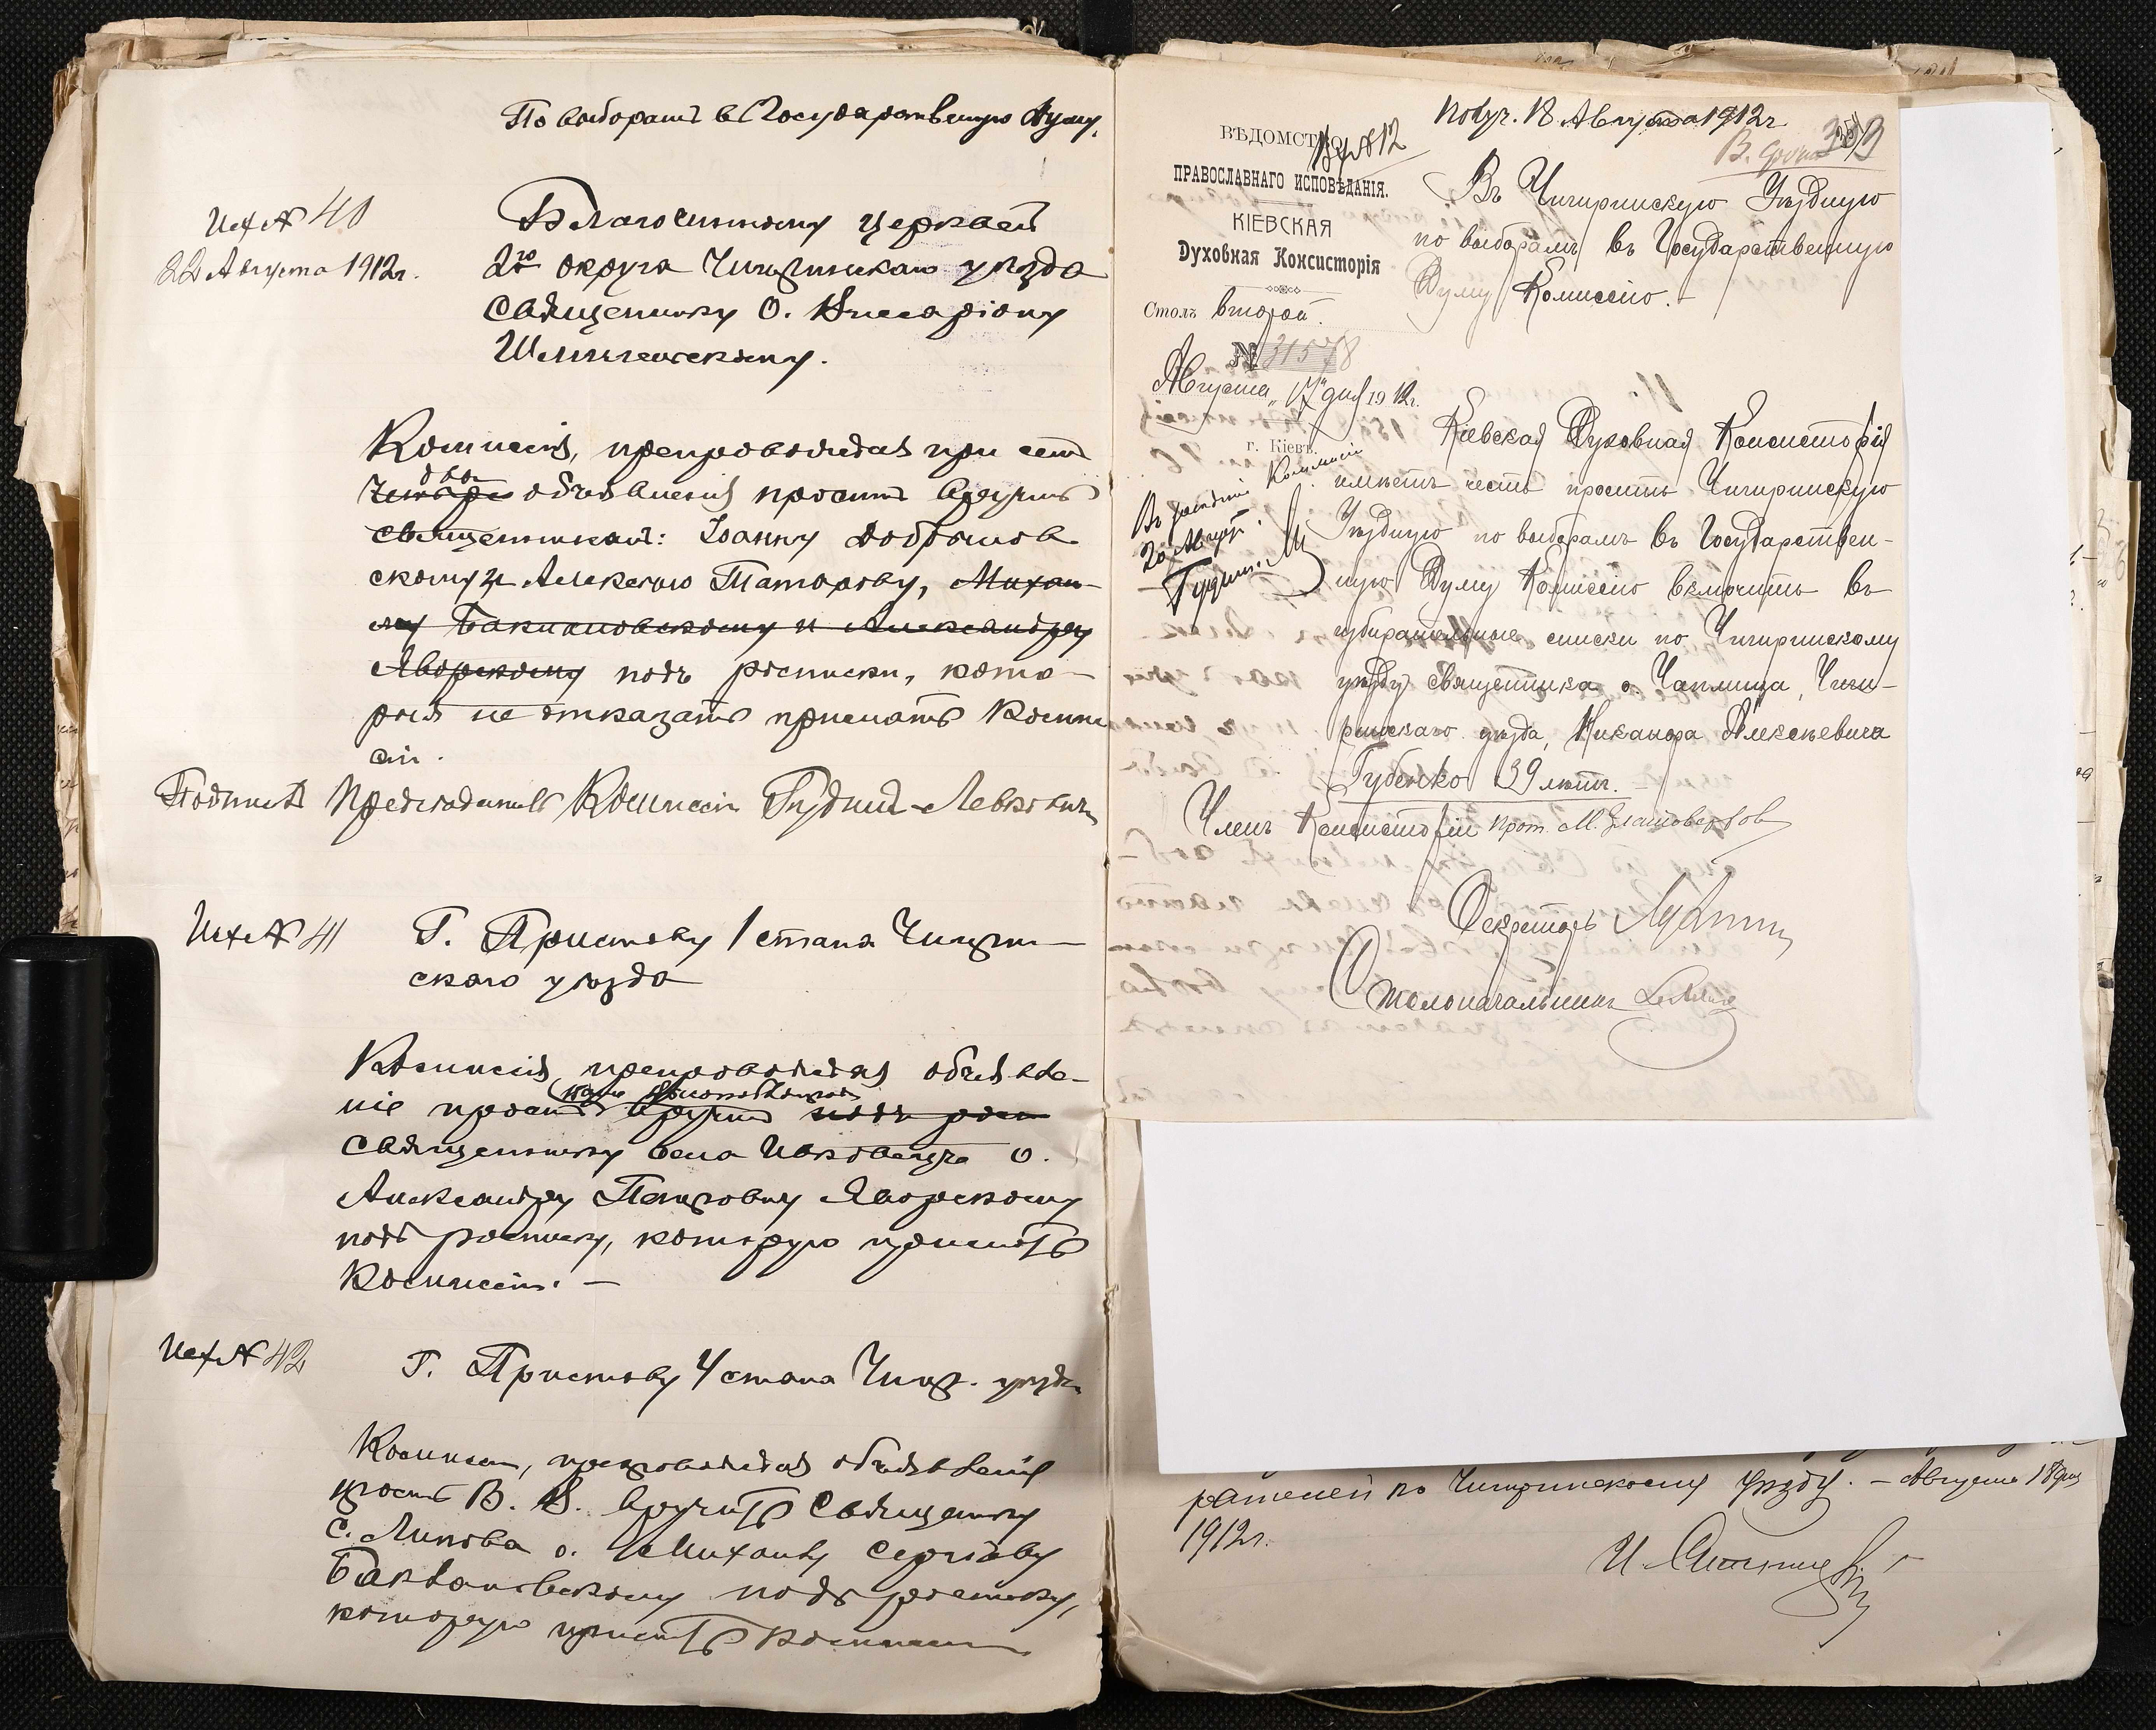 По выборамъ в Государственную Думу.
Исх № 40
22 Августа 1912г.
Благочинному церквей
2го округа Чигиринскаго уѣзда
Священнику О. Виссаріону
Комиссія, препровождая при семъ
два
четыре объявленія проситъ вручить
священникамъ: Іоанну Добровов
скому и Алексѣю Татарову, Михаи-
лу Бакхановскому и Александру
Яворскому подъ росписки, кото-
рыя не отказать прислать Комис
сіи.
Подписалъ Предсѣдатель Комиссіи Гудимъ-Левковичъ
Исх № 41
Г. Приставу 1 стана Чигирин-
скаго уѣзда
Комиссія, препровождая объявле-
ніе проситъ вручить подъ рос
священнику села Ивковецъ о.
Александру Петровичу Яворскому
подъ росписку, которую прислать
Комиссіи. —
Исх № 42
Г. Приставу 4 стана Чигир. уѣзда
Комиссія, препровождая объявленіе
проситъ В. В. вручить Священнику
с. Липова о. Михаилу Сергіеву
Бакхановскому подъ росписку,
которую прислать Комиссіи
Получ. 18 Августа 1912г
353
ВѢДОМСТВО
ПРАВОСЛАВНАГО ИСПОВѢДАНІЯ.
КІЕВСКАЯ
Духовная Консисторія
Столъ второй.
№ 31578
Августа „17" дня 1912г.
г. Кіевъ.
Въ засѣданіе Комиссіи
20 Август.
Въ Чигиринскую Уѣздную
по выборамъ въ Государственную
Думу Комиссію.
Кіевская Духовная Консисторія
имѣетъ честь просить Чигиринскую
Уѣздную по выборамъ въ Государствен-
ную Думу Комиссію включить въ
избирательные списки по Чигиринскому
уѣзду священника с. Чаплища, Чиги-
ринскаго уѣзда, Никанора Алексѣевича
Губенко 39 лѣтъ.
Членъ Консисторіи прот. М. Златоверховъ
Секретарь
Столоначальникъ
рателей по Чигиринскому уѣзду. — Августа 18 дня
1912г.